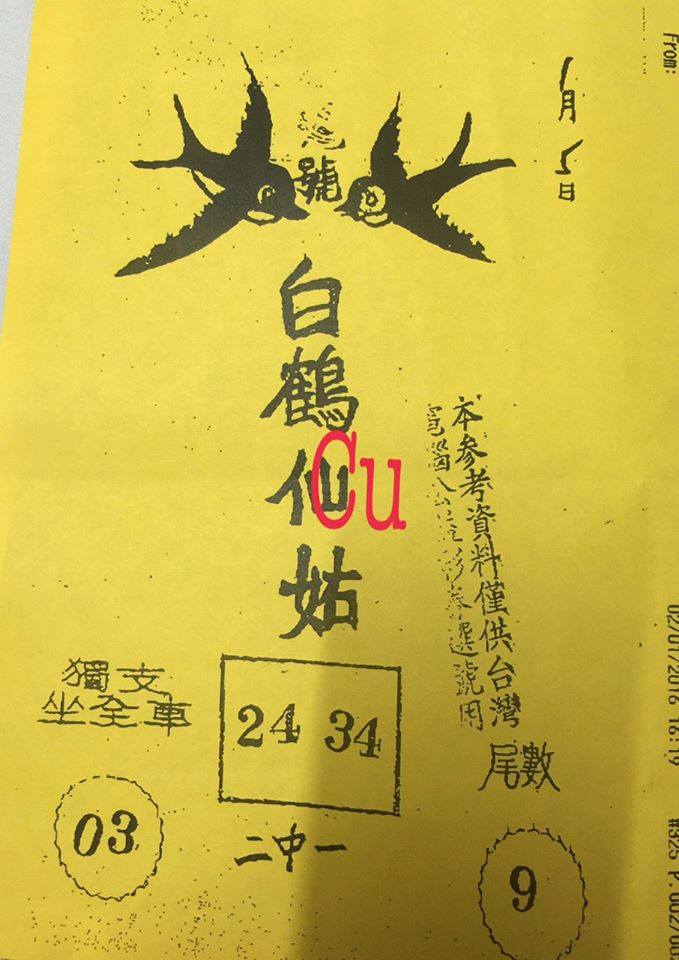 From:
1月5日
號
白鶴仙姑
Cu
本参考資料僅供台灣
選號用
02/01/2016 16:19
#325 P.002/00
獨支
坐全車
24 34
尾數
03
二中一
9